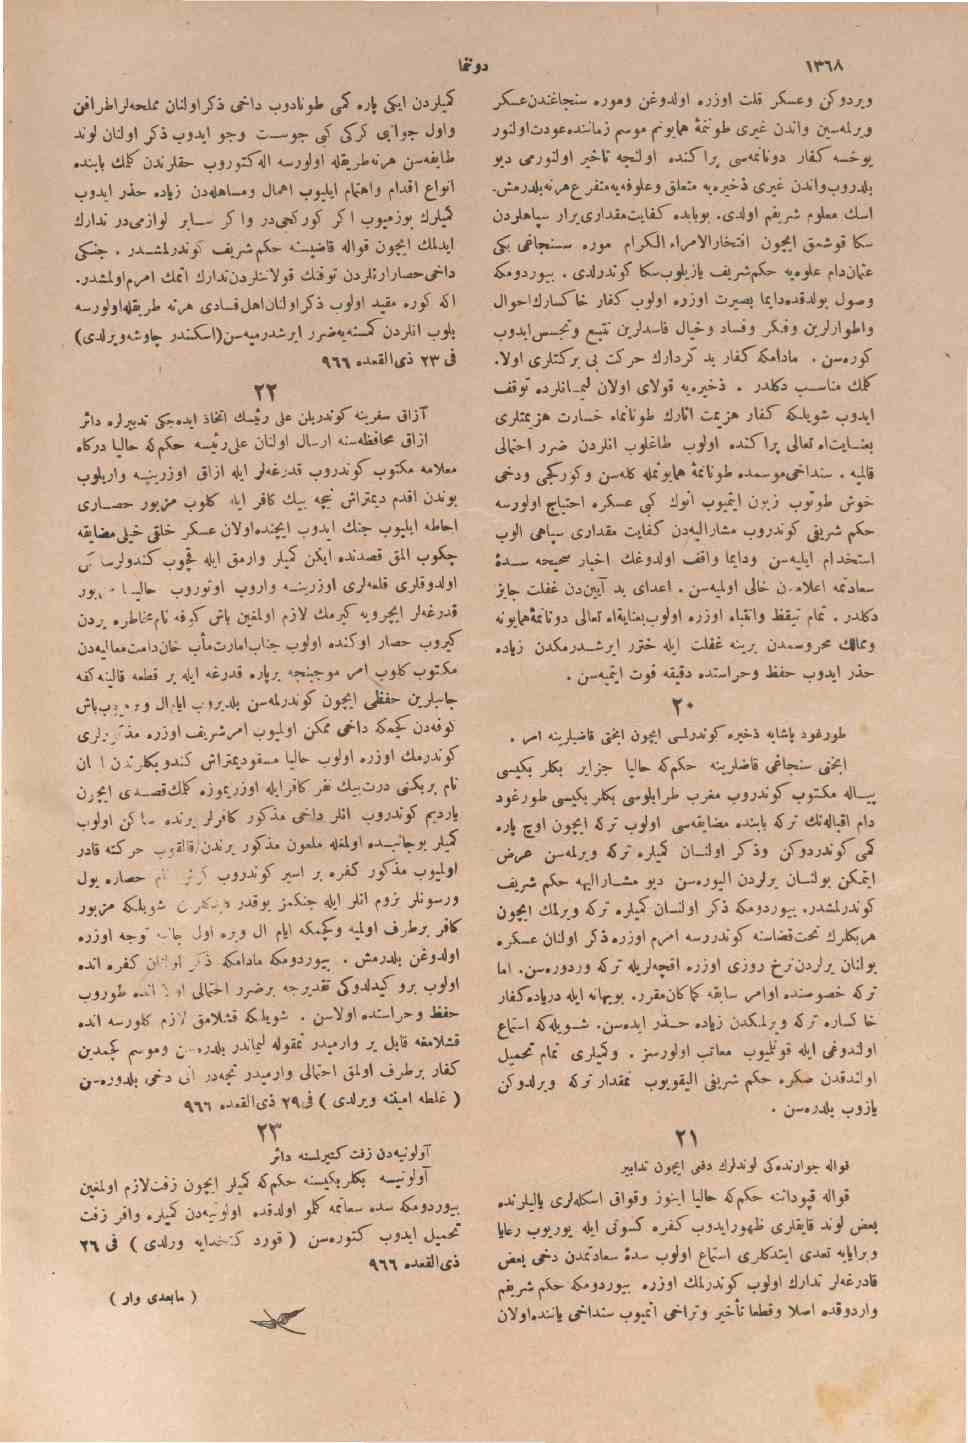 ١٣٦٨
دوننما
ويردوكن وعسكر قلت اوزره اولدوغن وموره سنجاغندن عسكر
ويرلمه‌سين واندن غيرى طوننمهٔ همايونم موسم زماننده عودت اولنور
يوخسه كفار دونانمه‌سى پراكنده اولنجه تاخير اولنورمى ديو
بلدروب واندن غيرى ذخيره‌يه متعلق وعلوفه‌يه متفرع هرنه بلدرمش‌ـ
اسك معلوم شريفم اولدى. بوبابده كفايت مقدارى يرار سپاهلردن
سكا قوشمق ايچون افتخارالامراء الكرام موره سنجاغى بكى
عثمان دام علوه‌يه حكم شريف يازيلوب سكا كوندرلدى . بيوردومكه
وصول بولدقده دايما بصيرت اوزره اولوب كفار خاكسارك احوال
واطوارلرين وفكر وفساد وخيال فاسدلرين تتبع وتجسس ايدوب
كوره‌سن . مادامكه كفار بد كردارك حركت بى بركتلرى اولا.
كلمك مناسب دكلدر . ذخيره‌يه قولاى اولان ليمانلرده توقف
ايدوب شويلكه كفار هزيمت اثارك طونانماء خسارت هزيمتلرى
بعنايت اه تعالى پراكنده اولوب طاغلوب انلردن ضرر احتمالى
قالميه . سنداخى موسمده طونانمهٔ همايونمله كله‌سن وكوركجى ودخى
خوش طوتوب زبون ايتميوب انوك كبى عسكره احتياج اولورسه
حكم شريفى كوندروب مشاراليه‌دن كفايت مقدارى سپاهى الوب
استخدام ايليه‌سن ودايما واقف اولدوغك اخبار صحيحه سدهٔ
سعادتمه اعلامدن خالى اولميه‌سن . اعداى بد آيين‌دن غفلت جايز
دكلدر . تمام تيقظ وانتباه اوزره اولوب بعناية‌اه تعالى دونانمهٔ همايونه
وممالك محروسمدن برينه غفلت ايله ختور ايرشدرمكدن زياده
حذر ايدوب حفظ وحراستده دقيقه فوت ايتميه‌سن .
٢٠
طورغود پاشايه ذخيره كوندرلمسى ايچون ابختى قاضيلرينه امر .
ابختى سنجاغى قاضلرينه حكم‌كه حاليا جزاير بكلر بكيسى
پياله مكتوب كوندروب مغرب طرابلوسى بكلر بكيسى طورغود
دام اقباله‌نك تركه بابنده مضايقه‌سى اولوب تركه ايچون اوچ پاره
كمى كوندردوكن وذكر اولنان كميلره تركه ويرلمه‌سن عرض
ايتمكن بولنان يرلردن اليوره‌سن ديو مشاراليهه حكم شريف
كوندرلمشدر. بيوردومكه ذكر اولنسان كميلره تركه ويرلمك ايچون
هربكلرك تحت قضاسنه كوندررسه امرم اوزره ذكر اولنان عسكره
بولنان يرلردن نرخ روزى اوزره اقچه‌لريله تركه وردوره‌سن. اما
تركه خصوصنده اوامر سابقه كماكان مقرر. بوبهانه ايله درياده كفار
خاكساره تركه ويرلمكدن زياده حذر ايده‌سن. شويله‌كه استماع
اولندوغى ايله قونليوب معاتب اولورسز . وكميلرى تمام تحميل
اولندقدن صكره حكم شريفى اليقويوب نمقدار تركه ويرلدوكن
يازوب بلدره‌سن .
٢١
قواله جوارنده‌كى لوندلرك دفعى ايچون تدابير
قواله قپوداننه حكم‌كه حاليا اينوز وقواق اسكله‌لرى ياليلرنده
بعض لوند قايقلرى ظهور ايدوب كفره كسوتى ايله يوريوب رعايا
وبرايايه تعدى ايتدكلرى استماع اولوب سدهٔ سعادتمدن دخى بعض
قادرغه‌لر تدارك اولوب كوندرلمك اوزره بيوردومكه حكم شريفم
واردوقده اصلا وقطعا تأخير وتراخى اتميوب سنداخى ياننده اولان
كميلردن ايكى پاره كمى طونادوب داخى ذكر اولنان مملحه‌لر اطرافن
واول جوانبى كركى كبى جوست وجو ايدوب ذكر اولنان لوند
طايفه‌سن هرنه طريقله اولورسه اله كتوروب حقلرندن كلمك بابنده
انواع اقدام واهتمام ايليوب اهمال ومساهله‌دن زياده حذر ايدوب
كميلرك بوزميوب اكر كوركجى‌در واكر ساير لوازمى‌در تدارك
ايدلمك ايچون قواله قاضيسنه حكم شريف كوندرلمشدر . جنكى
داخى حصار ارنلردن توفنك قولانلردن تدارك اتمك امرم اولمشدر.
اكا كوره مقيد اولوب ذكر اولنان اهل فسادى هرنه طريقله اولورسه
بلوب انلردن كمسنه‌يه ضرر ايرشدرميه‌سن (اسكندر چاوشه ويرلدى)
فى ٢٣ ذى القعده ٩٦٦
٢٢
آزاق سفرينه كوندريلن على رئيسك اتخاذ ايده‌جكى تدبيرلره دائر
ازاق محافظه‌سنه ارسال اولنان على رئيسه حكم‌كه حاليا دركاه
معلامه مكتوب كوندروب قدرغه‌لر ايله ازاق اوزرينه واريلوب
بوندن اقدم ديمتراش نيچه بيك كافر ايله كلوب مزبور حصارى
احاطه ايليوب جنك ايدوب ايچنده اولان عسكر خلقى خيلى مضايقه
چكوب المق قصدنده ايكن كميلر وارمق ايله قچوب كندولر
اولدوقلرى قلعه‌لرى اوزرينه واروب اوتوروب حاليا
قدرغه‌لر ايچرويه كيرمك لازم اولمغين باش كوفه نام مخاطره يردن
كيروب حصار اوكنده اولوب جناب امارت مأب خان دامت معاليه‌دن
مكتوب كلوب امر موجبنجه برپاره قدرغه ايله بر قطعه قاليته كفه
جانبلرين حفظى ايچون كوندرلمه‌سن بلدروب ايام ال ويرميوب باش
كوفه‌دن كچمكه داخى ممكن اولميوب امر شريف اوزره مذكورلرى
كوندرمك اوزره اولوب حاليا مسفود ديمتراش كندو بكلرندن
نام بربكنى درت بيك نفر كافر ايله اوزريموزه كلمك قصدى ايچون
يارديم كوندروب انلر داخى مذكور كافرلر يرنده ساكن اولوب
كميلر بوجانبده اولمغله ملعون مذكور يرندن قالقوب حركته قادر
اولميوب مذكور كفره بر اسير كوندروب حصاره يول
ورسونلر بزوم انلر ايله جنكمز يوقدر شويلكه مزبور
كافر برطرف اولميه وكچمكه ايام ال ويره اول جانبه توجه اوزره
اولدوغن بلدرمش . بيوردومكه مادامكه ذكر اولنان كفره انده
اولوب برو كيدلدوكى تقديرجه برضرر احتمالى اولا انده طوروب
حفظ وحراستده اولاسن . شويلكه قشلامق لازم كلورسه انده
قشلامغه قابل ير وارميدر نمقوله ليماندر بلدره‌سن وموسم كچمدين
كفار برطرف اولمق احتمالى وارميدر نيجه‌در انى دخى بلدوره‌سن
( غلطه امينه ويرلدى ) فى ٢٩ ذى القعده ٩٦٦
٢٣
آولونيه‌دن زفت كتيرلمسنه دائر
آولونيه بكلربكيسنه حكم‌كه كميلر ايچون زفت لازم اولمغين
بيوردومكه سده سعاتمه كملو اولدقده اولونيه‌دن كميلره وافر زفت
تحميل ايدوب كتوره‌سن ( قورد كتخدايه ورلدى ) فى ٢٦
ذى القعده ٩٦٦
( مابعدى وار )